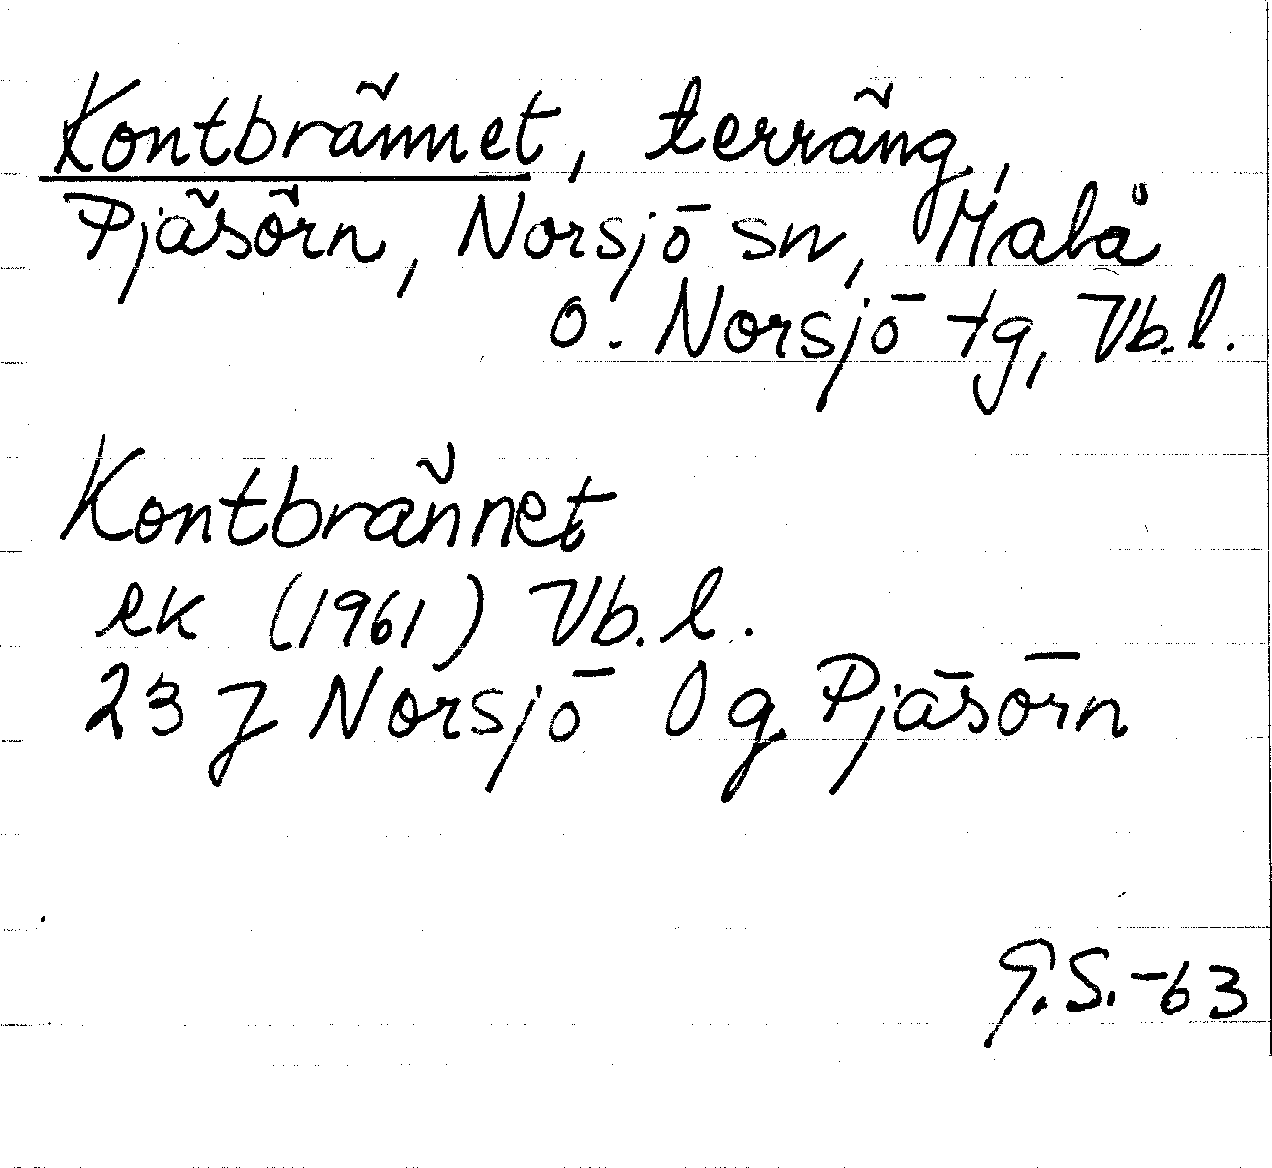 Kontbrännet, terräng,
Pjäsörn, Norsjö sn, Malå
o. Norsjö tg, Vb.l.
Kontbrännet
ek (1961) Vb.l.
23 J Norsjö 0 g Pjäsörn
G.S.-63